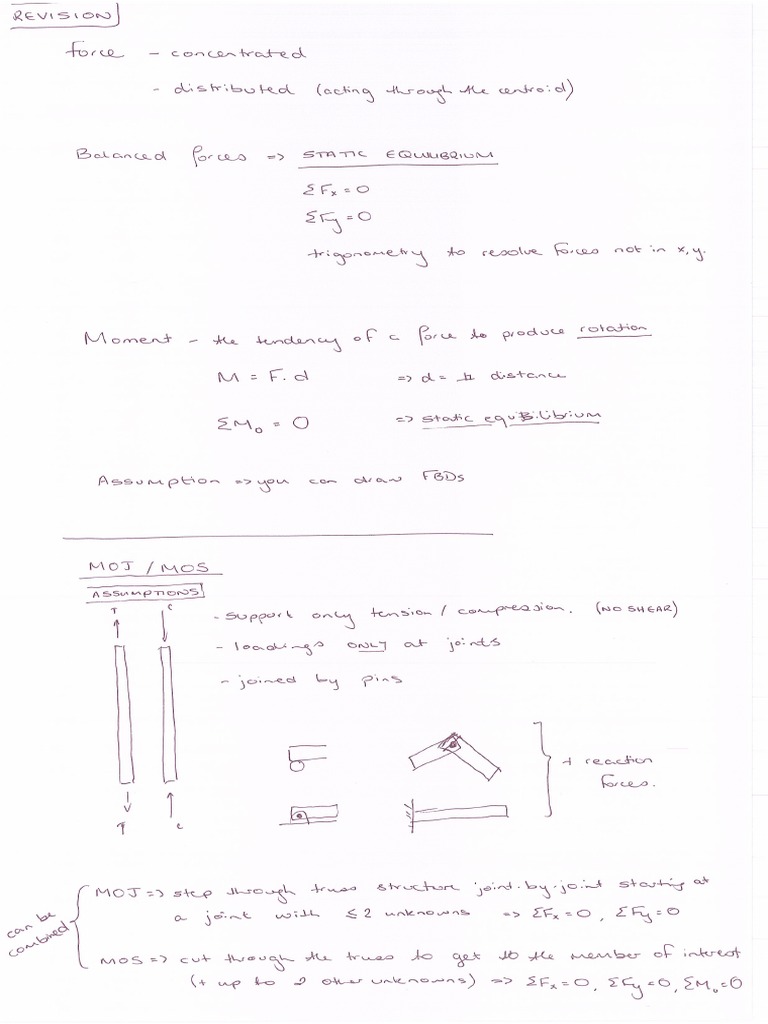 REVISION
Force - concentrated
- distributed (acting through the centroid)
Balanced forces => STATIC EQUILIBRIUM
ΣFx = 0
ΣFy = 0
trigonometry to resolve forces not in x,y.
Moment - the tendency of a force to produce rotation
M = F.d => d = ⊥ distance
ΣMo = 0 => static equilibrium
Assumption => you can draw FBDs
MOJ / MOS
ASSUMPTIONS
T C
- support only tension / compression. (NO SHEAR)
- loadings ONLY at joints
- joined by pins
+ reaction
forces.
T C
can be
combined
MOJ => step through truss structure joint-by-joint starting at
a joint with ≤ 2 unknowns => ΣFx = 0, ΣFy = 0
MOS => cut through the truss to get to the member of interest
(+ up to 2 other unknowns) => ΣFx = 0, ΣFy = 0, ΣMo = 0